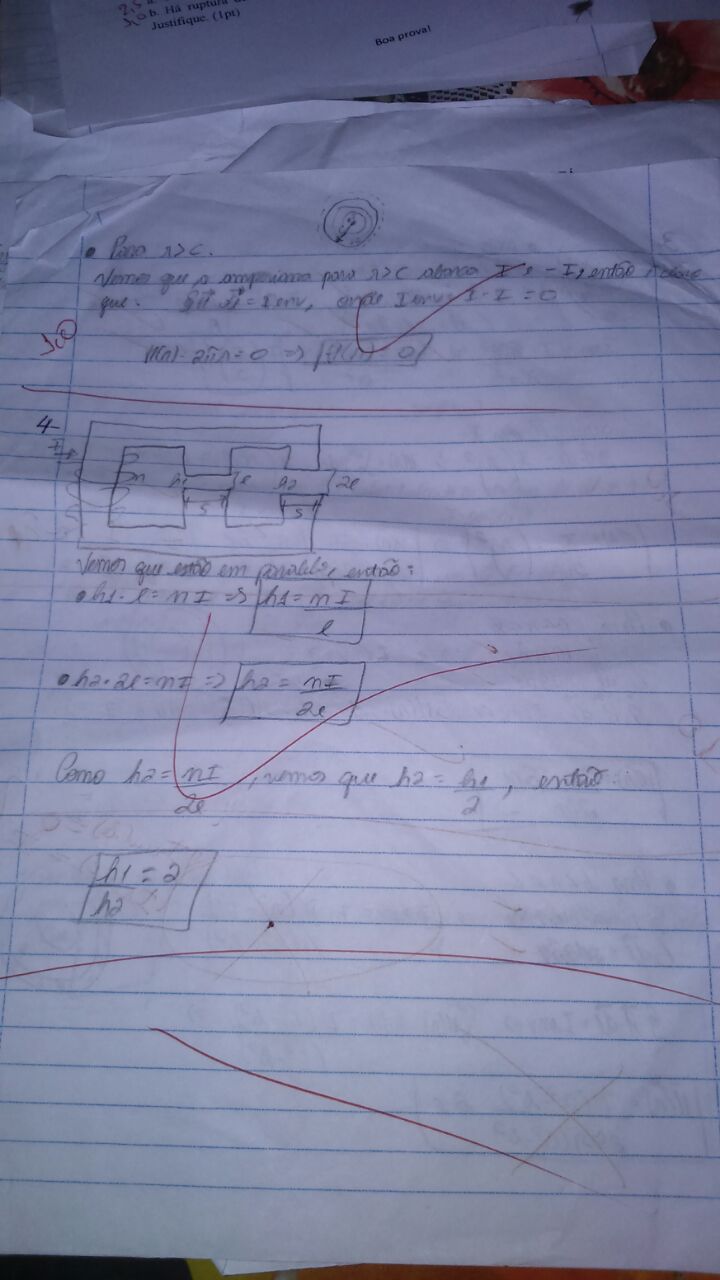 2,5 a.
1,0 b. Há ruptura d
Justifique. (1pt)
Boa prova!
• Para r>c.
Vemos que a amperiana para r>c abarca I e -I, então
que. ∮H⃗ dl⃗ = Ienv, onde Ienv = I - I = 0
1,0
H(r)·2πr=0 => H(r) = 0
4-
I
n h1 l h2 2l
s s
Vemos que estão em paralelo, então:
• h1·l=nI => h1=nI/l
• h2·2l=nI => h2=nI/2l
Como h2=nI/2l, vemos que h2=h1/2, então:
h1/h2=2